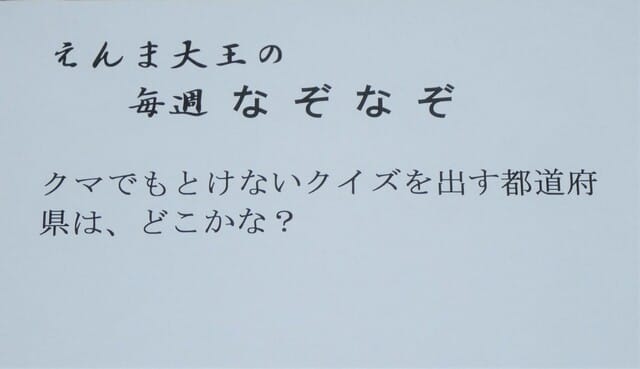 えんま大王の
毎週 な ぞ な ぞ
クマでもとけないクイズを出す都道府
県は、どこかな？